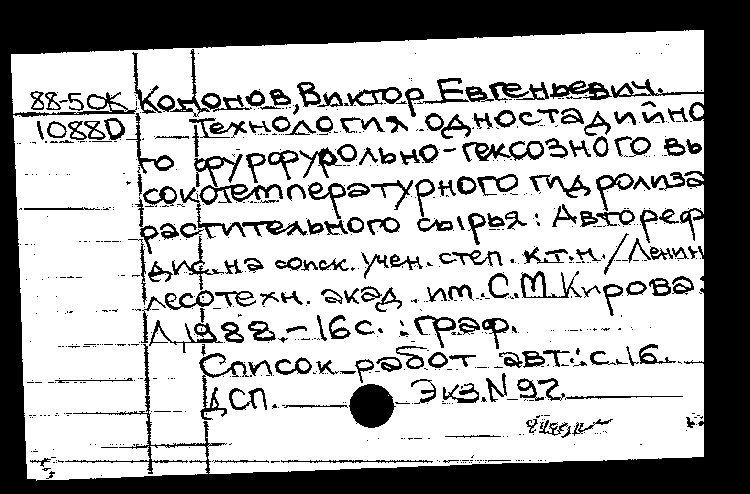 88-50К Кононов, Виктор Евгеньевич.
1088D Технология одностадийно
го фурфурольно-гексозного вы
сокотемпературного гидролиза
растительного сырья: Автореф
дис. на соиск. учен. степ. к.т.н. / Ленин
лесотехн. акад. им. С.М. Кирова.
Л, 1988. - 16 с. : граф.
Список работ авт.: с. 16.
ДСП. Экз. N 92.